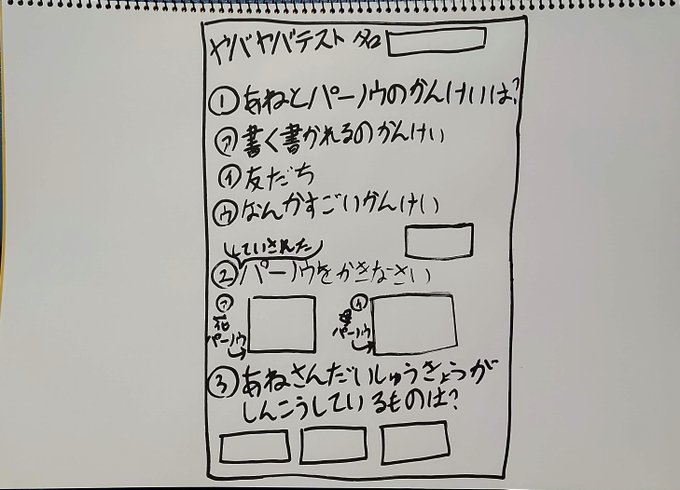 ヤバヤバテスト 名
① あねとパーノウのかんけいは?
㋐ 書く書かれるのかんけい
㋑ 友だち
㋒ なんかすごいかんけい
していされた
② パーノウをかきなさい
㋐ ㋑
花
パーノウ パーノウ
③ あねさんだいしゅうきょうが
しんこうしているものは?